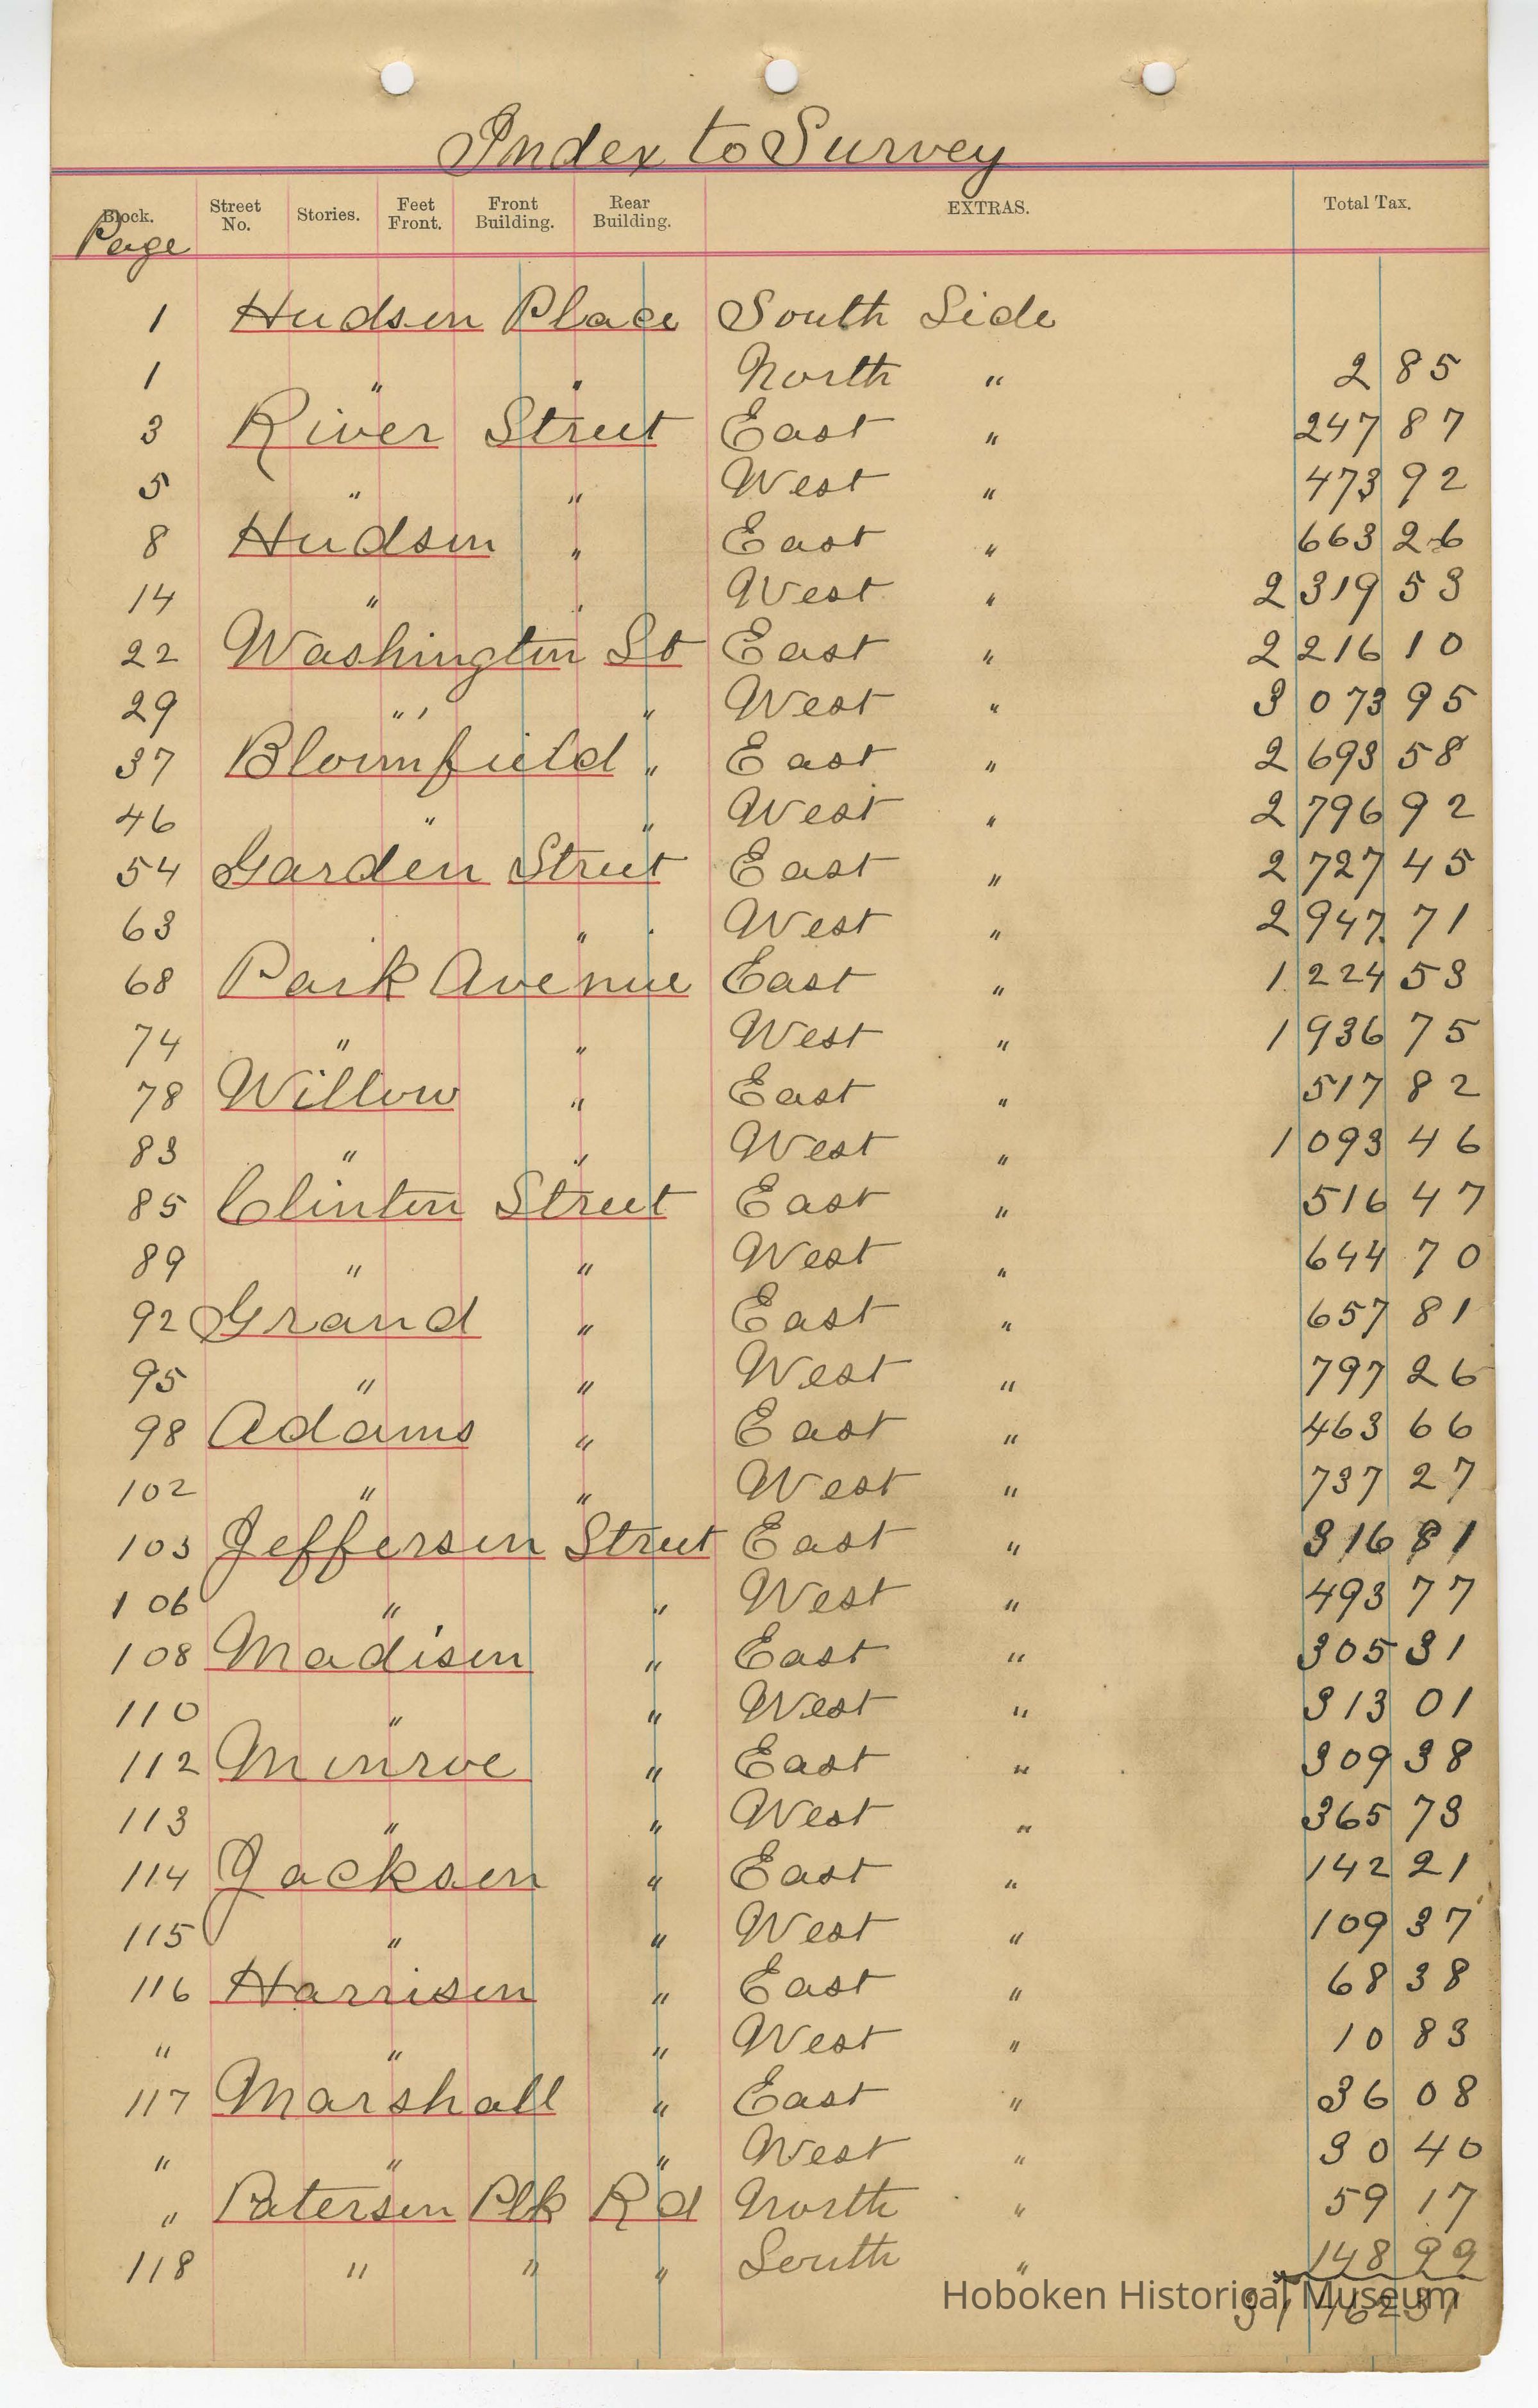 Index to Survey
Block. Street No. Stories. Feet Front. Front Building. Rear Building. EXTRAS. Total Tax.
Page
1 Hudson Place South Side
1 " " North " 2 85
3 River Street East " 247 87
5 " " West " 473 92
8 Hudson " East " 663 26
14 " " West " 2 319 53
22 Washington St East " 2 216 10
29 " " West " 3 073 95
37 Bloomfield " East " 2 693 58
46 " " West " 2 796 92
54 Garden Street East " 2 727 45
63 " " West " 2 947 71
68 Park Avenue East " 1 224 53
74 " " West " 1 936 75
78 Willow " East " 517 82
83 " " West " 1 093 46
85 Clinton Street East " 516 47
89 " " West " 644 70
92 Grand " East " 657 81
95 " " West " 797 26
98 Adams " East " 463 66
102 " " West " 737 27
103 Jefferson Street East " 316 81
106 " " West " 493 77
108 Madison " East " 305 31
110 " " West " 313 01
112 Monroe " East " 309 38
113 " " West " 365 73
114 Jackson " East " 142 21
115 " " West " 109 37
116 Harrison " East " 68 38
" " " West " 10 83
117 Marshall " East " 36 08
" " " West " 30 40
" Paterson Plk Rd North " 59 17
118 " " " South " 148 99
Hoboken Historical Museum